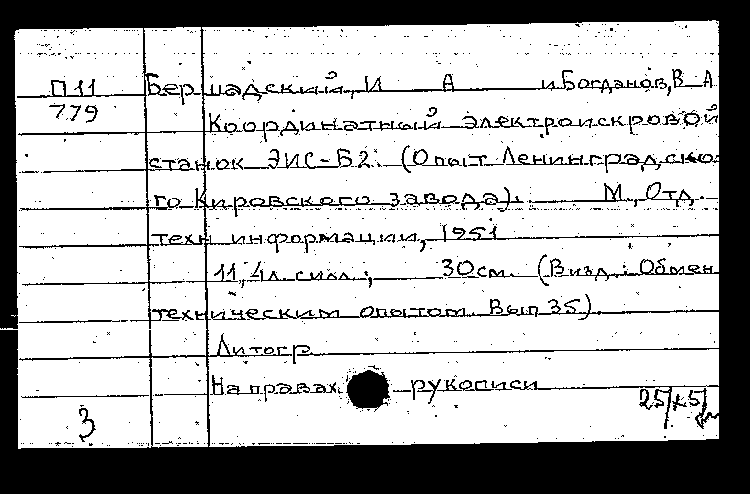 П11 Бершадский, И А и Богданов, В А
779 Координатный электроискровой
станок ЭИС-Б2. (Опыт Ленинградско-
го Кировского завода). М., Отд.
техн информации, 1951
11, 4л. с илл.; 30см. (В изд.: Обмен
техническим опытом. Вып 35).
Литогр
На правах рукописи
3